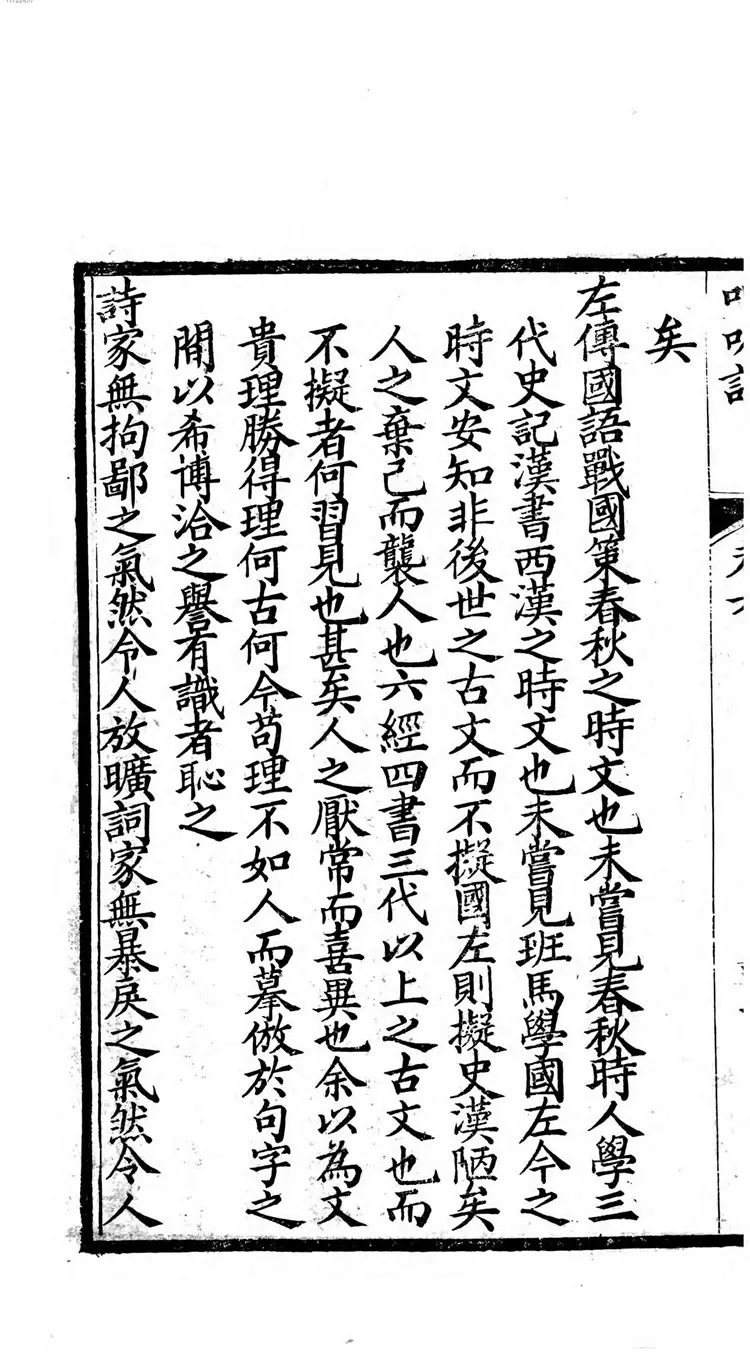 呻吟語
矣
左傳國語戰國策春秋之時文也未嘗見春秋時人學三
代史記漢書西漢之時文也未嘗見班馬學國左今之
時文安知非後世之古文而不擬國左則擬史漢陋矣
人之棄己而襲人也六經四書三代以上之古文也而
不擬者何習見也甚矣人之厭常而喜異也余以為文
貴理勝得理何古何今苟理不如人而摹倣於句字之
間以希博洽之譽有識者恥之
詩家無拘鄙之氣然令人放曠詞家無暴戾之氣然令人